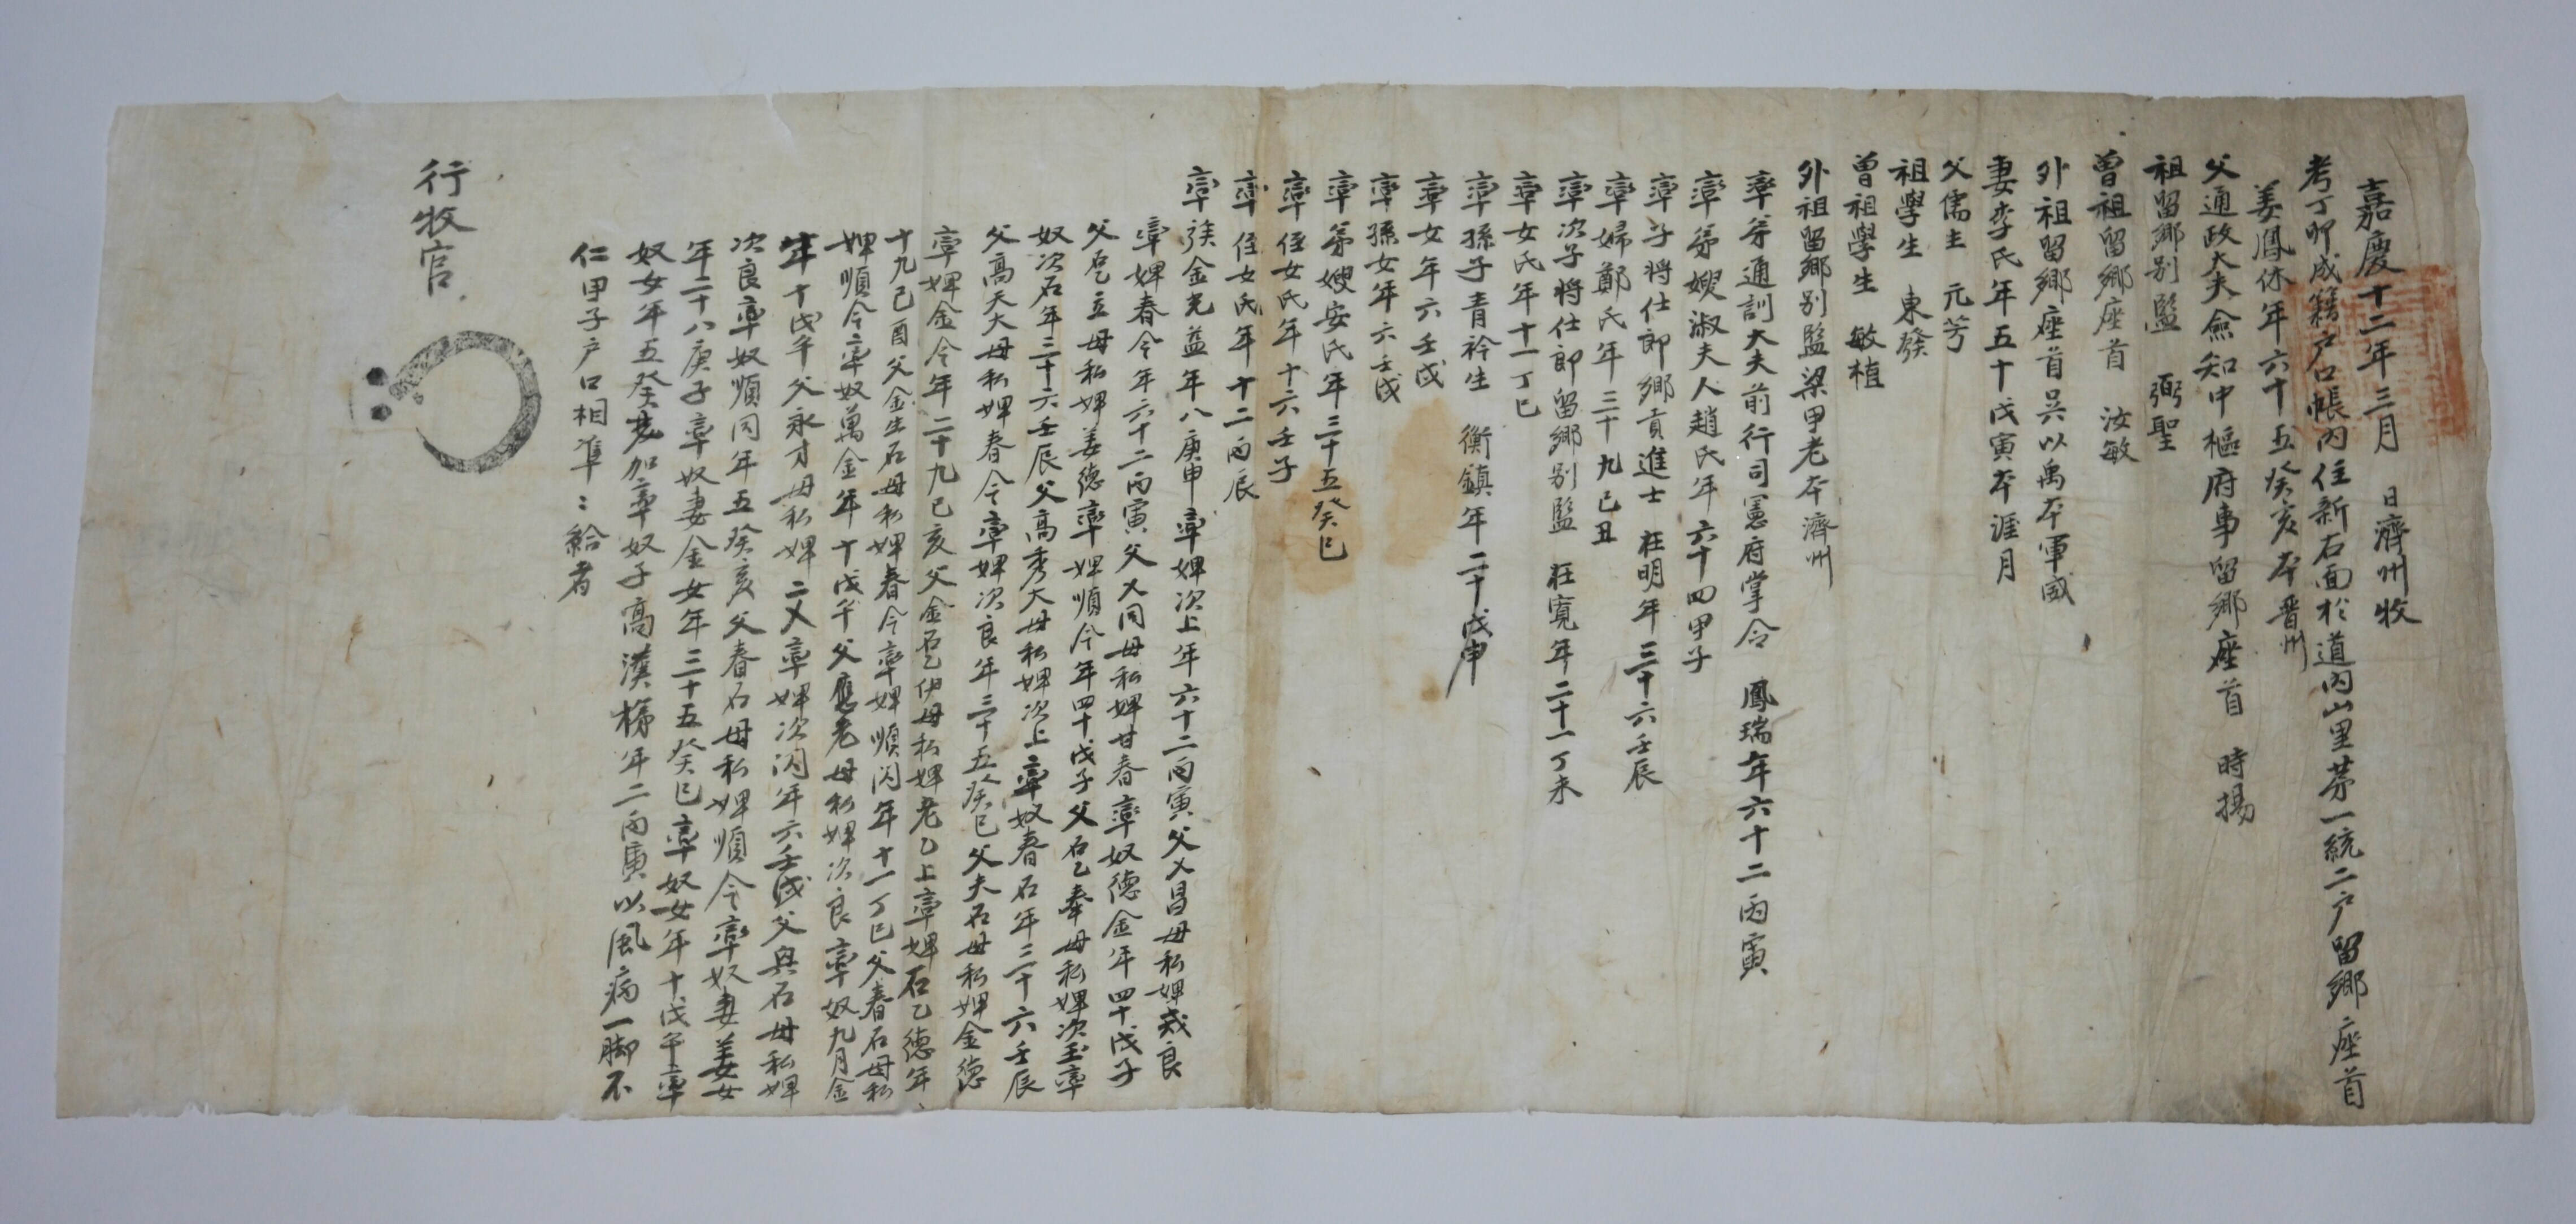 嘉慶十二年三月 日濟州牧
考丁卯成籍戶口帳內住新右面於道內山里苐一統二戶留鄉座首
姜鳳休年六十五癸亥本晋州
父通政大夫僉知中樞府事留鄉座首 時揚
祖留鄉別監 弼聖
曾祖留鄉座首 汝敏
外祖留鄉座首吴以禹本軍威
妻李氏年五十戊寅本涯月
父儒生 元芳
祖學生 東發
曾祖學生 敏植
外祖留鄉別監梁甲老本濟州
率弟通訓大夫前行司憲府掌令 鳳瑞年六十二丙寅
率弟嫂淑夫人趙氏年六十四甲子
率子將仕郎鄉貢進士 在明年三十六壬辰
率婦鄭氏年三十九己丑
率次子將仕郎留鄉別監 在寬年二十一丁未
率女氏年十一丁巳
率孫子青衿生 衡鎮年二十戊申
率女年六壬戌
率孫女年六壬戌
率弟嫂安氏年三十五癸巳
率侄女氏年十六壬子
率侄女氏年十二丙辰
率族金光益年八庚申率婢次上年六十二丙寅父乂昌母私婢戒良
率婢春今年六十二丙寅父乂同母私婢甘春率奴德金年四十戊子
父乭立母私婢姜德率婢順今年四十戊子父石乙奉母私婢次玉率
奴次石年三十六壬辰父高秀大母私婢次上率奴春石年三十六壬辰
父高天大母私婢春今率婢次良年三十五癸巳父夫石母私婢金德
率婢金今年二十九己亥父金乭伊母私婢老乙上率婢石乙德年
十九己酉父金生石母私婢春今率婢順闪年十一丁巳父春石母私
婢順今率奴萬金年十戊午父應老母私婢次良率奴九月金
年十戊午父永才母私婢二乂率婢次闪年六壬戌父與石母私婢
次良率奴順同年五癸亥父春石母私婢順今率奴妻姜女
年二十八庚子率奴妻金女年三十五癸巳率奴女年十戊午率
奴女年五癸亥加率奴子高漢梯年二丙寅以風病一脚不
仁甲子戶口相準：給者
行牧官